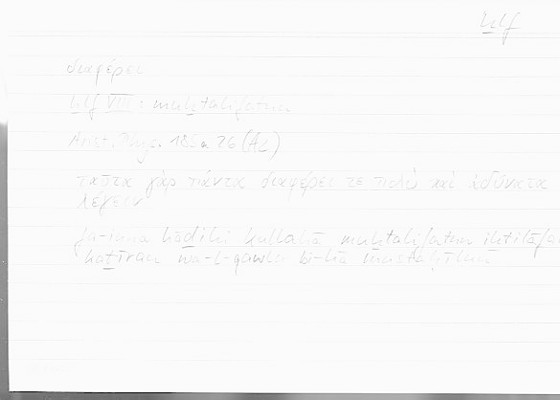 ḫlf
διαφέρει
ḫlf VIII: muḫtalifatun
Arist. Phys. 185a 26 (A2)
ταῦτα γὰρ πάντα διαφέρει τε πολὺ καὶ ἀδύνατα
λέγειν
fa-inna hāḏihī kullahā muḫtalifatun iḫtilāfan
kaṯīran wa-l-qawlu bi-hā mustaḥīlun